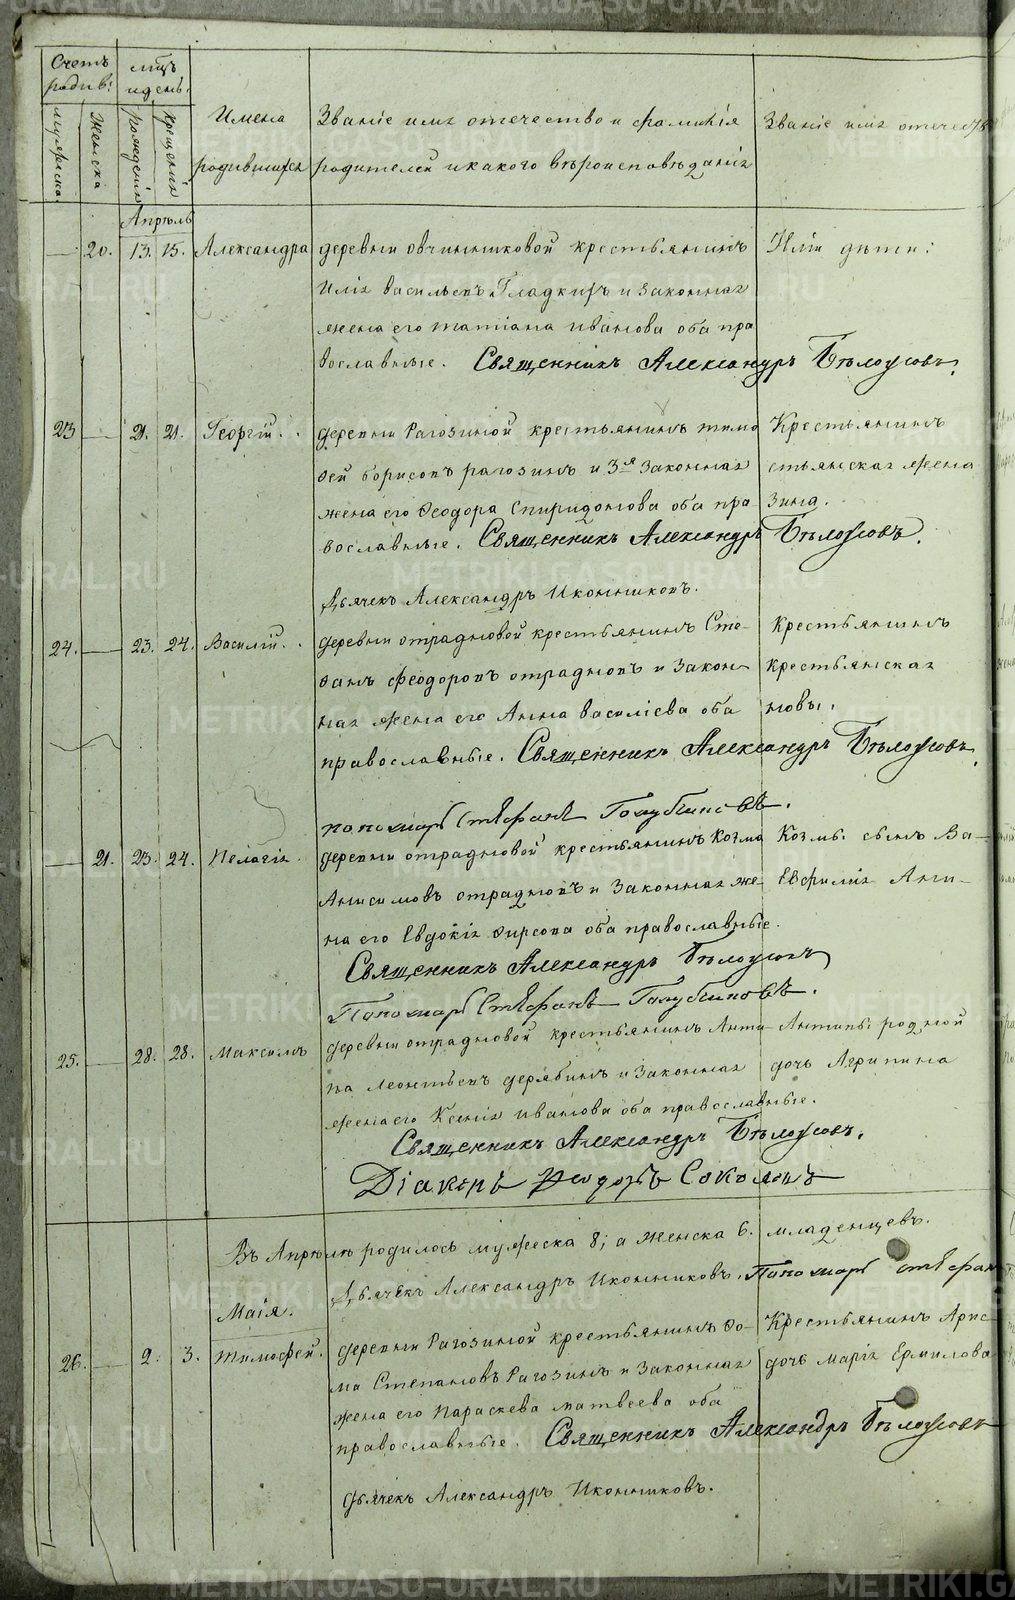 Счетъ родив: мцъ и день.
мужеска женска рожденія крещенія
Имена родившихся
Званіе имя отечество и фамилія родителей и какого вѣроисповѣданія
Званіе имя отечес
Апрѣль
20. 13. 15. Александра деревни овчинниковой крестьянинъ Или дѣти:
Илія васильевъ Гладкихъ и законная
жена его татіана иванова оба пра
вославные. Священникъ Александръ Бѣлоусовъ.
23 21. 21. Георгій. деревни Рагозиной крестьянинъ тимо Крестьянинъ
ѳей борисовъ рагозинъ и 3я законная стьянская жена
жена его Ѳеодора Спиридонова оба пра зина.
вославные. Священникъ Александръ Бѣлоусовъ.
Дьячекъ Александръ Иконниковъ.
24. 23. 24. Василій. деревни отрадновой крестьянинъ Сте- Крестьянинъ
ѳанъ Феодоровъ отрадновъ и закон крестьянская
ная жена его Анна василіева оба новы.
православные. Священникъ Александръ Бѣлоусовъ.
пономарь Стефанъ Голубчиковъ.
21. 23. 24. Пелагія. деревни отрадновой крестьянинъ Козма Козмы сынъ Ва-
Анисимовъ отрадновъ и законная же- Евфилія Ани-
на его Евдокія Ѳирсова оба православные.
Священникъ Александръ Бѣлоусовъ
Пономарь Стефанъ Голубчиковъ.
25. 28. 28. Максимъ деревни отрадновой крестьянинъ Анти- Антипы родной
па леонтьевъ дерябинъ и законная дочь Агрипина
жена его Ксенія иванова оба православные.
Священникъ Александръ Бѣлоусовъ.
Діаконъ Ѳеодоръ Соколовъ
Въ Апрѣлѣ родилось мужеска 8; а женска 6. младенцевъ.
Дьячекъ Александръ Иконниковъ. Пономарь Стефан
Маія.
26. 2. 3. тимоѳей. деревни Рагозиной крестьянинъ Ѳо- Крестьянинъ Арис-
ма Степановъ Рагозинъ и законная дочь марія Ермилова
жена его Параскева матвеева оба
православные. Священникъ Александръ Бѣлоусовъ
Дьячекъ Александръ Иконниковъ.
METRIKI.GASO-URAL.RU